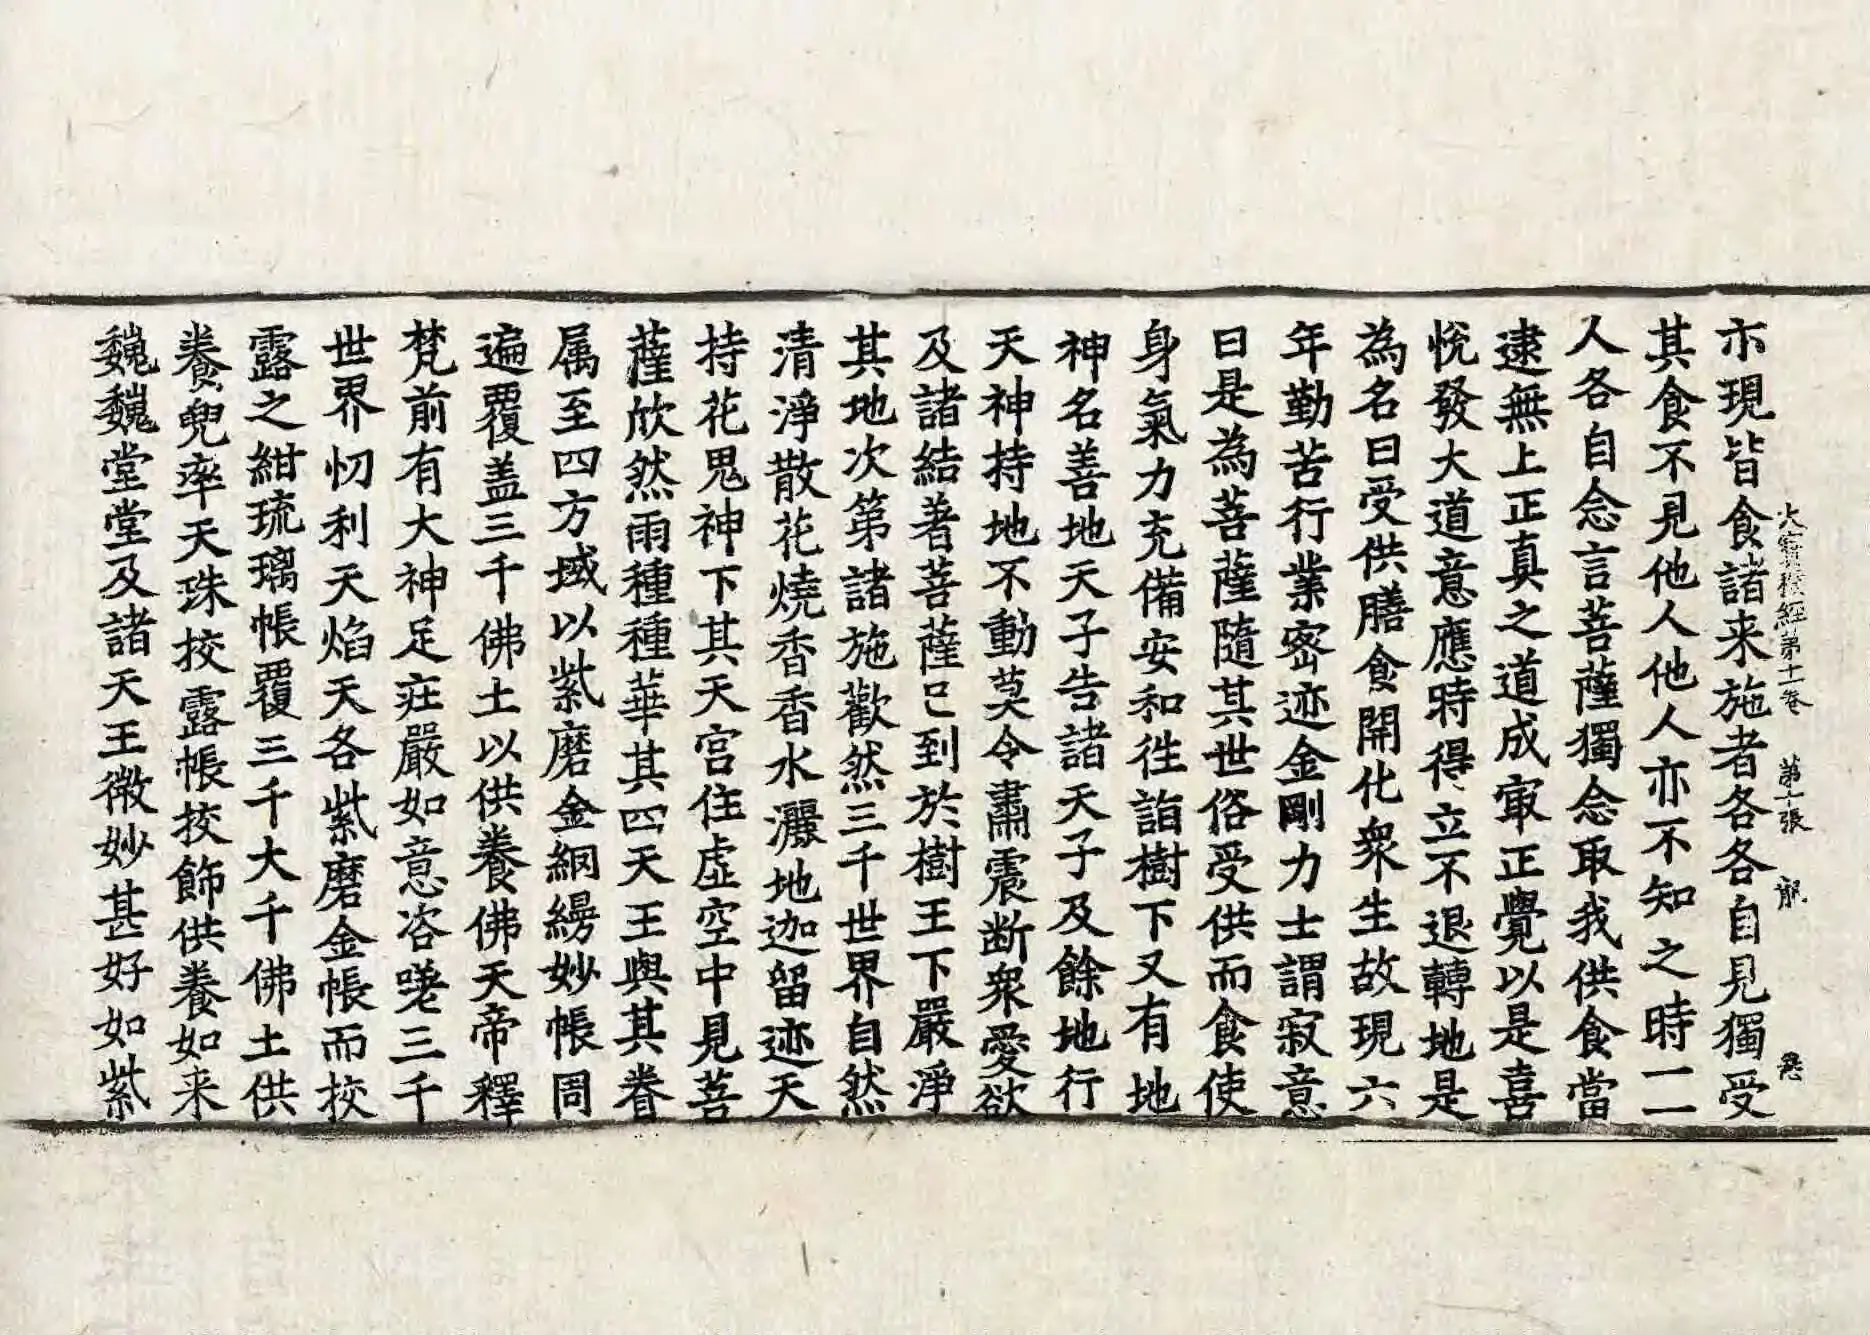 大寶積經第十一卷 第十張 龍
示現皆食諸来施者各各自見獨受
其食不見他人他人亦不知之時一一
人各自念言菩薩獨念取我供食當
逮無上正真之道成㝡正覺以是喜
悅發大道意應時得立不退轉地是
為名曰受供膳食開化衆生故現六
年勤苦行業密迹金剛力士謂寂意
曰是為菩薩隨其世俗受供而食使
身氣力充備安和徃詣樹下又有地
神名善地天子告諸天子及餘地行
天神持地不動莫令肅震断衆愛欲
及諸結著菩薩已到於樹王下嚴淨
其地次第諸施歡然三千世界自然
清淨散花燒香香水灑地迦留迹天
持花鬼神下其天宮住虛空中見菩
薩欣然雨種種華其四天王與其眷
属至四方域以紫磨金網縵妙帳周
遍覆盖三千佛土以供養佛天帝釋
梵前有大神足莊嚴如意咨嗟三千
世界忉利天焰天各紫磨金帳而挍
露之紺琉璃帳覆三千大千佛土供
養兜率天珠挍露帳挍飾供養如来
巍巍堂堂及諸天王微妙甚好如紫